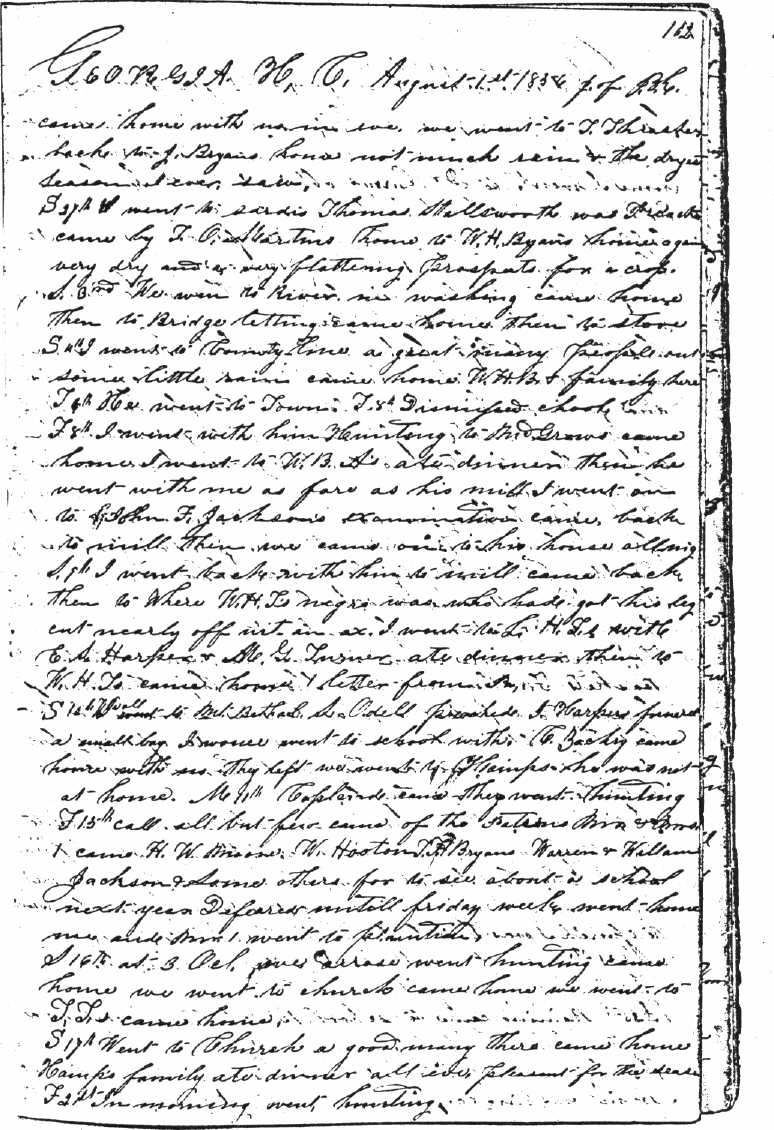 112
GEORGIA H, C, August 1st 1854 p of
came home with us in eve. we went to T. Thrasher
back to J. Bryans home not much rain & the dryes
season I ever saw,
S 27th I went to sardis Thomas Stallsworth was Preach
came by T. O. Martins home to W. H. Byans home again
very dry and a very flattering Prospects for a crop.
S. 3rd We wen to River in washing came home
then to Bridge letting came home then to store
S 4th I went to County Line a great many People out
some little rain came home W. H. B. & family here
He went to Town. Dismissed chool
F 8th I went with him Hunting to McGrows came
home I went to W. B. As ate dinner then he
went with me as fare as his mill I went on
to John F. Jacksons examination came back
to mill then we came on to his house all nig
S 9th I went back with him to mill came back
then to Where W. H. Ls negro was who had got his leg
cut nearly off wit an ax. I went to L. H. Ls with
E A Harper & M. G. Turner ate dinner then to
W. H. Ls came home 1 letter from
S went to Mt. Bethel S. Odell preached. J. Harpers funeral
a small boy I wonce went to school with. C Zachry came
home with us. they left we went to Hamps he was not
at home. M 11th Copeland came they went hunting
F 15th call all but few came of the Patrons
1 came H. W. Moore. W. Hooton Bryans Warren & William
Jackson & some others for to see about a school
next year Defeared untill friday week went home
me and went to
S 16th at 3 Ocl, we arrose went hunting came
home we went to church came home we went to
came home,
S 17th Went to Church a good many there came home
Hamps family ate dinner all eve pleasant for the seas
F 21st In morning went hunting